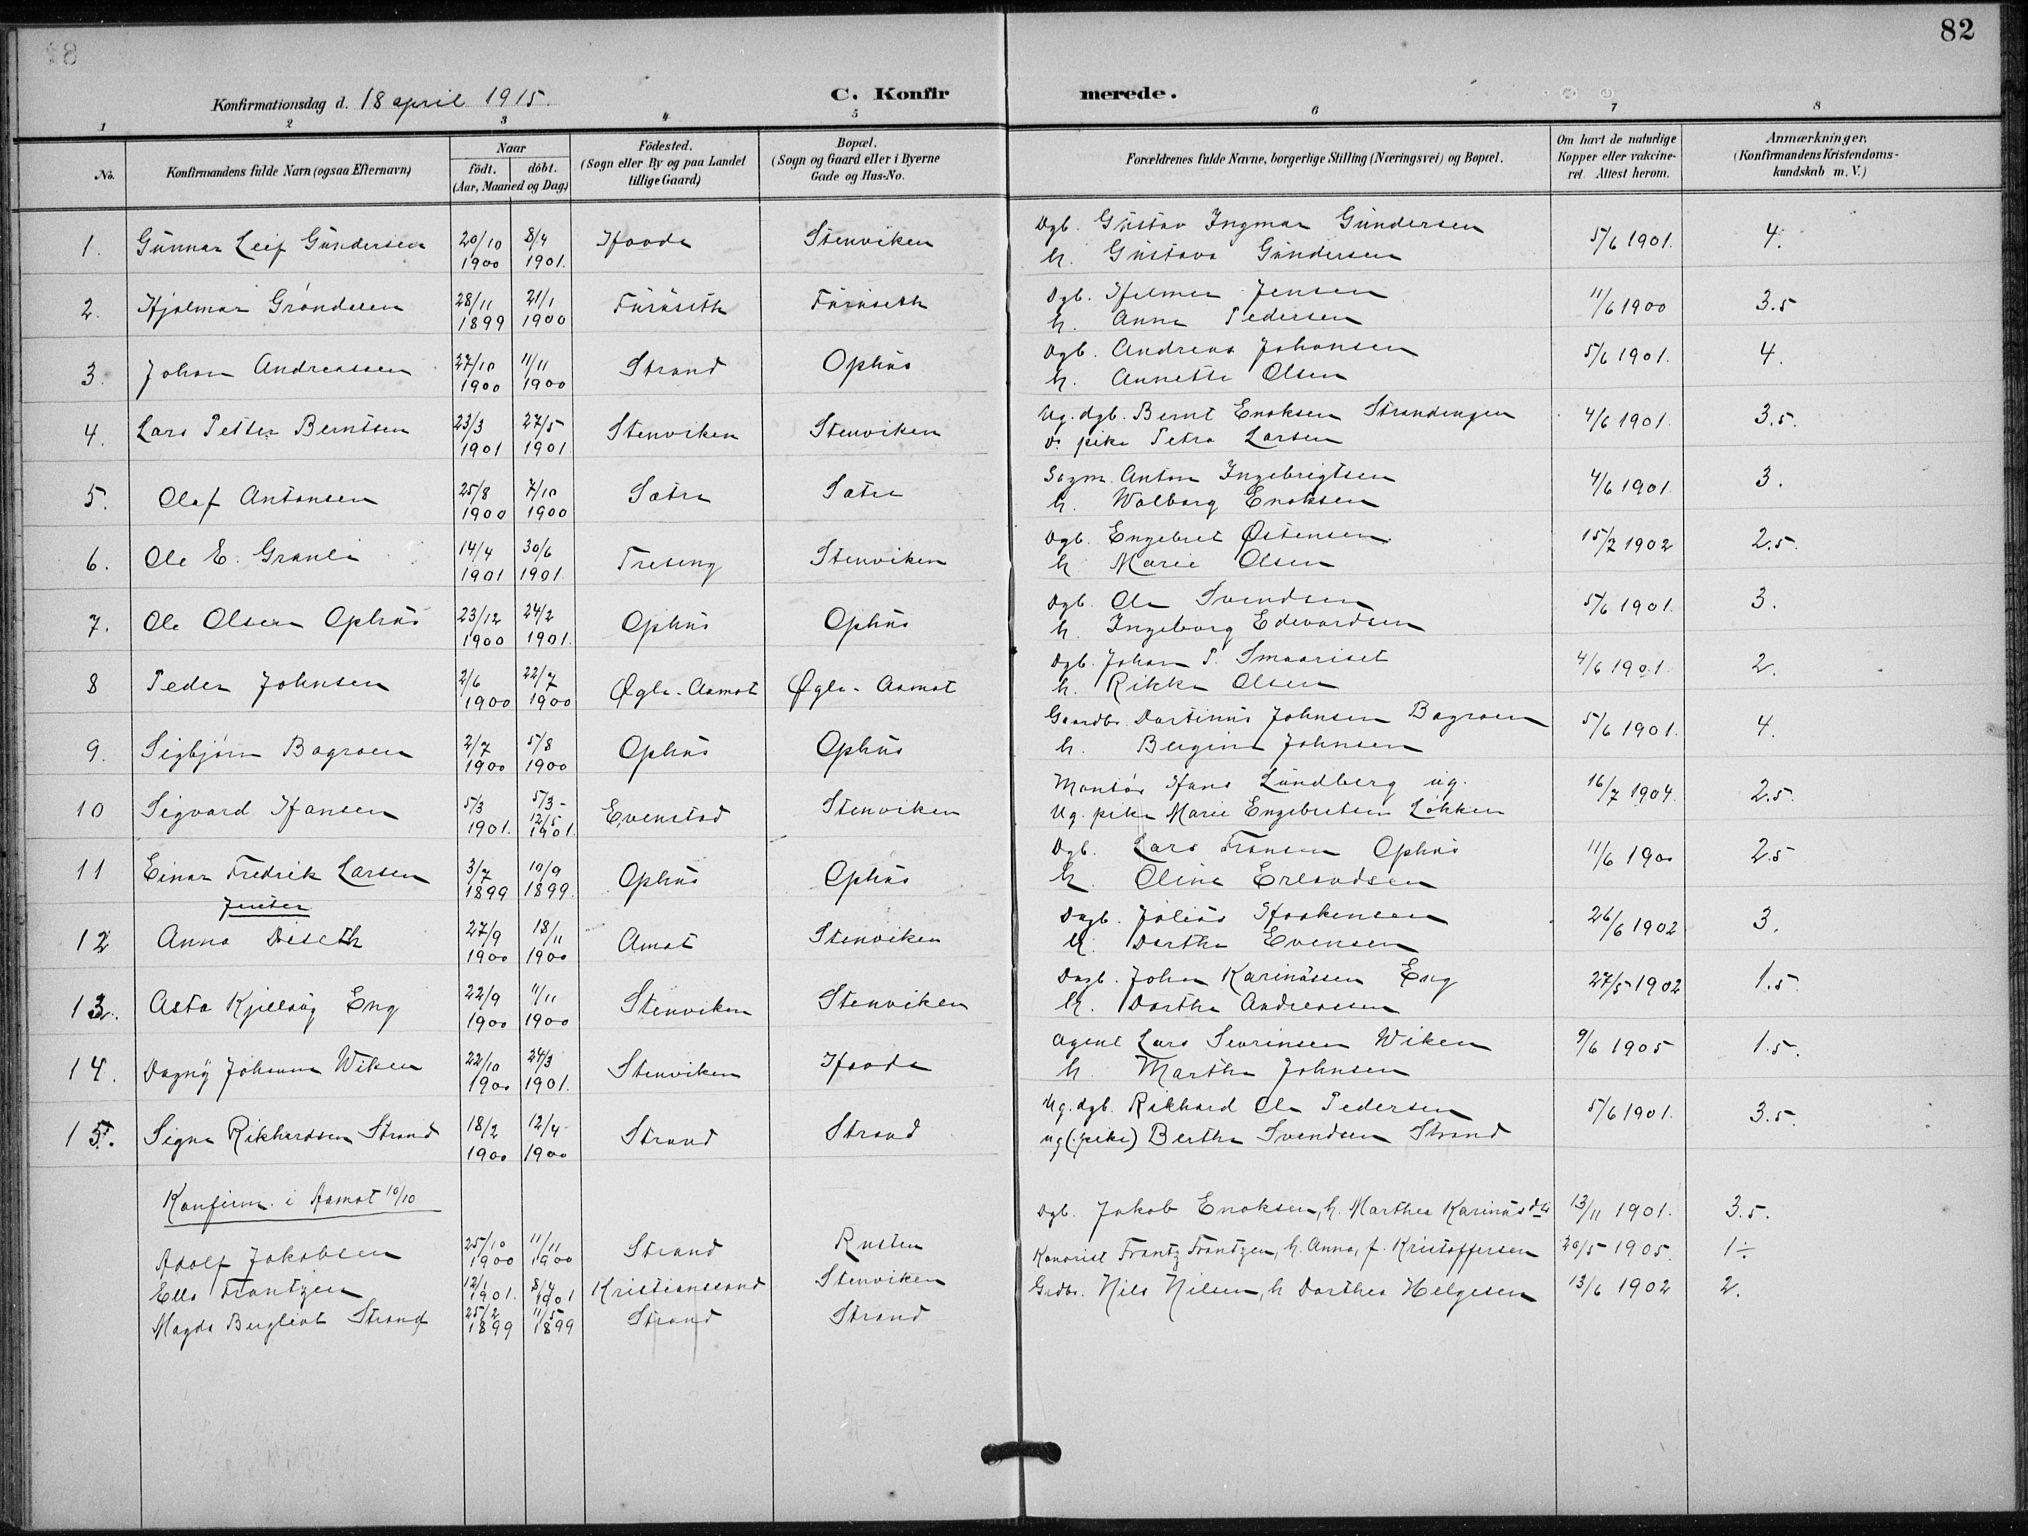 82
Konfirmationsdag d. 18 april 1915. C. Konfirmerede.
1 2 3 4 5 6 7 8
No. Konfirmandens fulde Navn (ogsaa Efternavn) Naar födt. döbt. (Aar, Maaned og Dag) Födested. (Sogn eller By og paa Landet tillige Gaard) Bopæl. (Sogn og Gaard eller i Byerne Gade og Hus-No. Forældrenes fulde Navne, borgerlige Stilling (Næringsvei) og Bopæl. Om havt de naturlige Kopper eller vakcineret. Attest herom. Anmærkninger, (Konfirmandens Kristendomskundskab m. V.)
1. Gunnar Leif Gundersen 20/10 1900 8/4 1901. Haade Stenviken Dgb. Gustav Ingmar Gundersen 5/6 1901. 4.
h. Gustava Gundersen
2. Hjalmar Gröndalen 28/11 1899 21/1 1900 Furuseth Furuseth Dgb. Helmer Jensen 11/6 1900 3.5
h. Anna Pedersen
3. Johan Andreassen 27/10 1900 11/11 1900 Strand Ophus Dgb. Andreas Johansen 5/6 1901. 4.
h. Annette Olsen
4. Lars Petter Berntsen 23/3 1901 27/5 1901 Stenviken Stenviken Ug. dgb. Bernt Enoksen Strandengen 4/6 1901. 3.5.
pike Petra Larsen
5. Olaf Antonsen 25/8 1900 7/10 1900 Sætre Sætre Sagm. Anton Ingebrigtsen 4/6 1901. 3.
h. Walborg Enoksen
6. Ole E. Granli 14/4 1901 30/6 1901. Treseng Stenviken Dgb. Engebret Østensen 15/7 1902 2.5.
h. Marie Olsen
7. Ole Olsen Ophus 23/12 1900 24/2 1901. Ophus Ophus Dgb. Ole Svendsen 5/6 1901. 3.
h. Ingeborg Edvardsen
8 Peder Johnsen 2/6 1900 22/7 1900 Øgle-Aamot Øgle-Aamot Dgb. Johan P. Smaariset 4/6 1901. 2.
h. Rikke Olsen
9. Sigbjörn Bagroen 2/7 1900 5/8 1900 Ophus Ophus Gaardbr. Dortinus Johnsen Bagroen 5/6 1901. 4.
h. Bergine Johnsen
10 Sigvard Hansen 5/3 1901. 5/3 - 12/5 1901. Evenstad Stenviken Montör Hans Lundberg ug. 16/7 1904. 2.5.
Ug. pike Marie Engebretsen Løkken
11 Einar Fredrik Larsen 3/7 1899 10/9 1899. Ophus Ophus Dgb. Lars Fransen Ophus 11/6 1900 2.5
h. Oline Erlandsen
Jenter
12 Anna Diseth 27/9 1900 18/11 1900 Amot Stenviken Dagb. Julius Haakensen 26/6 1902 3.
h. Dorthe Evensen
13. Asta Kjellaug Eng 22/9 1900 11/11 1900 Stenviken Stenviken Dagb. Johan Karinussen Eng 27/5 1902 1.5.
h. Dorthe Andreassen
14. Dagny Johanne Wiken 22/10 1900 24/3 1901. Stenviken Haade Agent Lars Severinsen Wiken 9/6 1905 1.5.
h. Marthe Johnsen
15. Signe Rikhardsen Strand 18/2 1900 12/4 1900 Strand Strand Ug. dgb. Rikhard Ole Pedersen 5/6 1901. 3.5.
ug (pike) Berthe Svendsen Strand
Konfirm. i Aamot 10/10
Adolf Jakobsen 25/10 1900 11/11 1900 Strand Rusten Dgb. Jakob Enoksen, h. Marthea Karinusdtr 13/11 1901. 3.5.
Ella Frantzen 12/1 1901. 8/4 1901 Kristianssand Stenviken Frantz Frantzen, h. Anna, f. Kristoffersen 20/5 1905. 1÷
Magda Bergliot Strand 25/2 1899 11/5 1899 Strand Strand Grdbr. Nils Nilsen, h Dorthea Helgesen 13/6 1902 2.